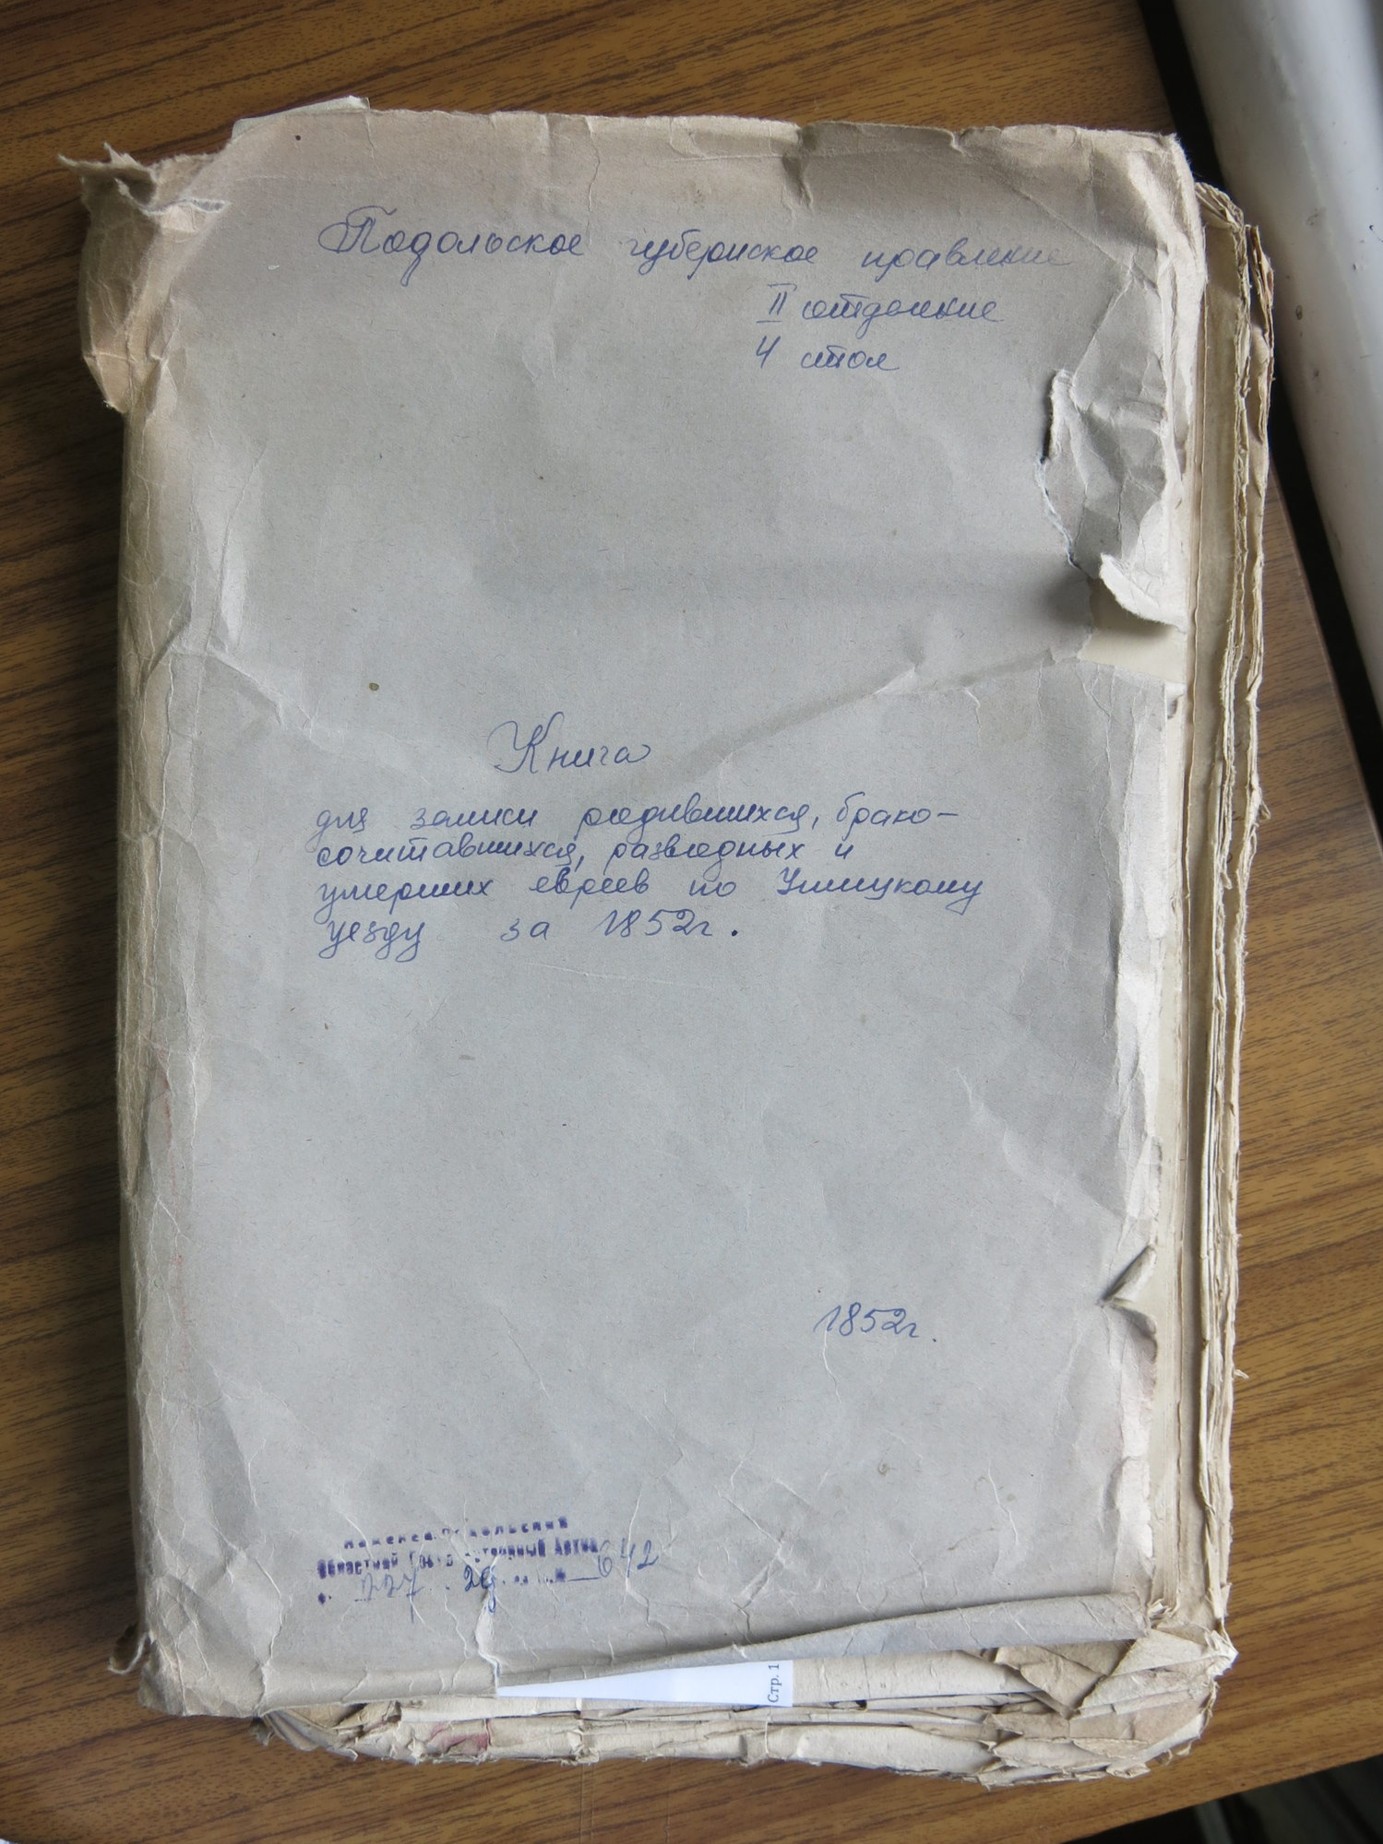 Подольское губернское правление
II отделение
4 стол
Книга
для записи родившихся, брако-
сочитавшихся, разводных и
умерших евреев по Ушицкому
уезду за 1852г.
1852г.
Каменец-Подольский
Областной Государственный Архив
ф. 227 642
Стр. 1